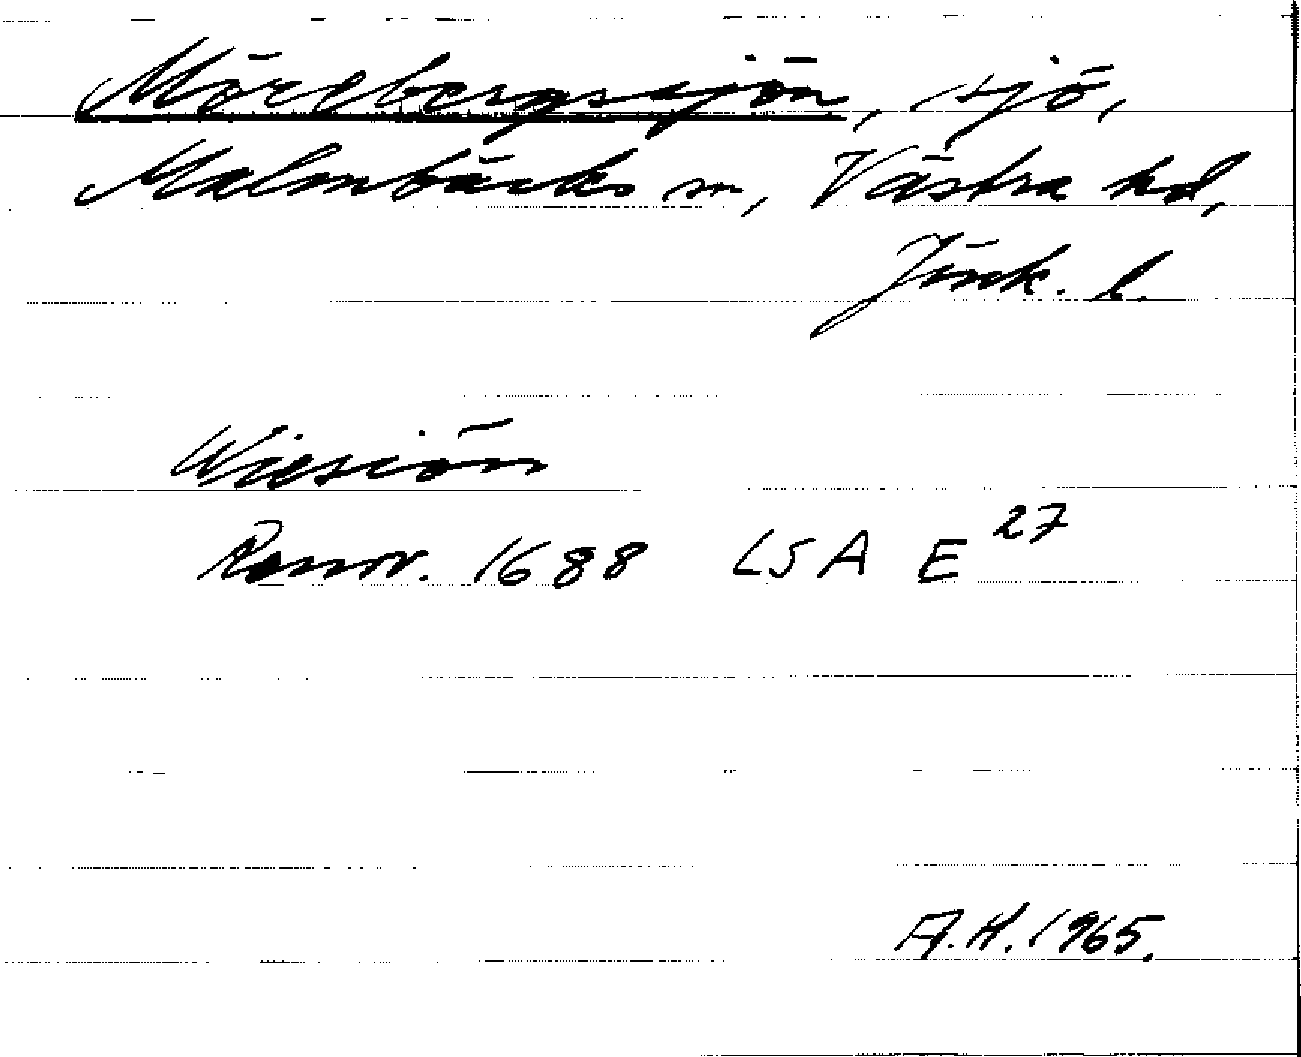 Mörebergssjön, sjö,
Malmbäcks sn, Västra hd,
Jönk. l.
Wiesiön
Rannr. 1688 LSA E 27
A.H. 1965.